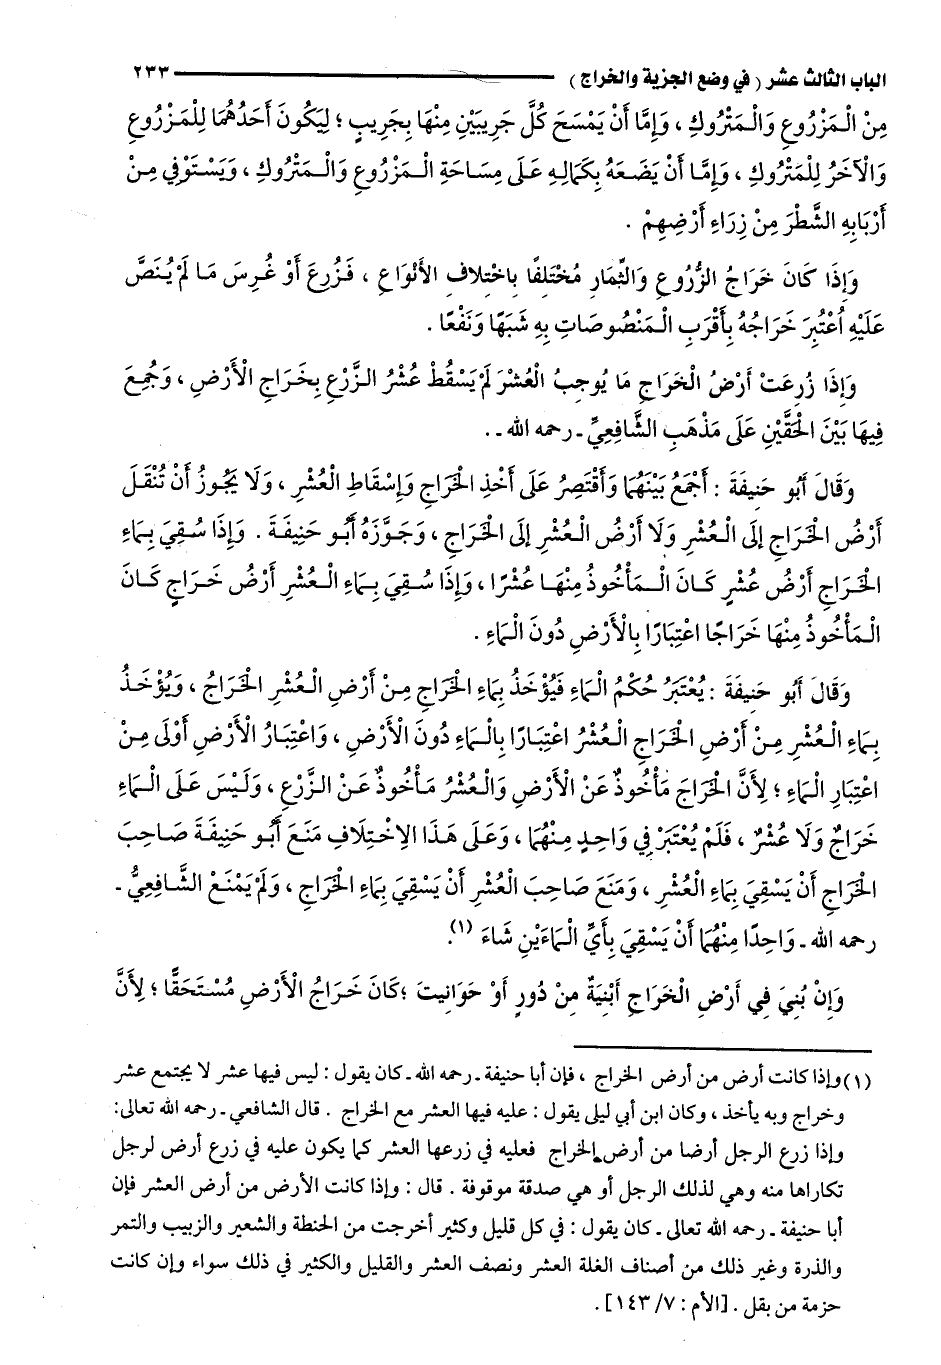 الباب الثالث عشر ( في وضع الجزية والخراج ) ٢٣٣
مِنْ الْمَزْرُوعِ وَالْمَتْرُوكِ ، وَإِمَّا أَنْ يَمْسَحَ كُلَّ جَرِيبَيْنِ مِنْهَا بِجَرِيبٍ ؛ لِيَكُونَ أَحَدُهُمَا لِلْمَزْرُوعِ
وَالْآخَرُ لِلْمَتْرُوكِ ، وَإِمَّا أَنْ يَضَعَهُ بِكَمَالِهِ عَلَى مِسَاحَةِ الْمَزْرُوعِ وَالْمَتْرُوكِ ، وَيَسْتَوْفِي مِنْ
أَرْبَابِهِ الشَّطْرَ مِنْ زِرَاءِ أَرْضِهِمْ .
وَإِذَا كَانَ خَرَاجُ الزُّرُوعِ وَالثِّمَارِ مُخْتَلِفًا بِاخْتِلَافِ الْأَنْوَاعِ ، فَزُرِعَ أَوْ غُرِسَ مَا لَمْ يُنَصَّ
عَلَيْهِ اُعْتُبِرَ خَرَاجُهُ بِأَقْرَبِ الْمَنْصُوصَاتِ بِهِ شَبَهًا وَنَفْعًا .
وَإِذَا زُرِعَتْ أَرْضُ الْخَرَاجِ مَا يُوجِبُ الْعُشْرَ لَمْ يَسْقُطْ عُشْرُ الزَّرْعِ بِخَرَاجِ الْأَرْضِ ، وَجُمِعَ
فِيهَا بَيْنَ الْحَقَّيْنِ عَلَى مَذْهَبِ الشَّافِعِيِّ ـ رحمه الله ـ .
وَقَالَ أَبُو حَنِيفَةَ : أَجْمَعُ بَيْنَهُمَا وَأَقْتَصِرُ عَلَى أَخْذِ الْخَرَاجِ وَإِسْقَاطِ الْعُشْرِ ، وَلَا يَجُوزُ أَنْ تُنْقَلَ
أَرْضُ الْخَرَاجِ إلَى الْعُشْرِ وَلَا أَرْضُ الْعُشْرِ إلَى الْخَرَاجِ ، وَجَوَّزَهُ أَبُو حَنِيفَةَ . وَإِذَا سُقِيَ بِمَاءِ
الْخَرَاجِ أَرْضُ عُشْرٍ كَانَ الْمَأْخُوذُ مِنْهَا عُشْرًا ، وَإِذَا سُقِيَ بِمَاءِ الْعُشْرِ أَرْضُ خَرَاجٍ كَانَ
الْمَأْخُوذُ مِنْهَا خَرَاجًا اعْتِبَارًا بِالْأَرْضِ دُونَ الْمَاءِ .
وَقَالَ أَبُو حَنِيفَةَ : يُعْتَبَرُ حُكْمُ الْمَاءِ فَيُؤْخَذُ بِمَاءِ الْخَرَاجِ مِنْ أَرْضِ الْعُشْرِ الْخَرَاجُ ، وَيُؤْخَذُ
بِمَاءِ الْعُشْرِ مِنْ أَرْضِ الْخَرَاجِ الْعُشْرُ اعْتِبَارًا بِالْمَاءِ دُونَ الْأَرْضِ ، وَاعْتِبَارُ الْأَرْضِ أَوْلَى مِنْ
اعْتِبَارِ الْمَاءِ ؛ لِأَنَّ الْخَرَاجَ مَأْخُوذٌ عَنْ الْأَرْضِ وَالْعُشْرُ مَأْخُوذٌ عَنْ الزَّرْعِ ، وَلَيْسَ عَلَى الْمَاءِ
خَرَاجٌ وَلَا عُشْرٌ ، فَلَمْ يُعْتَبَرْ فِي وَاحِدٍ مِنْهُمَا ، وَعَلَى هَذَا الِاخْتِلَافِ مَنَعَ أَبُو حَنِيفَةَ صَاحِبَ
الْخَرَاجِ أَنْ يَسْقِيَ بِمَاءِ الْعُشْرِ ، وَمَنَعَ صَاحِبَ الْعُشْرِ أَنْ يَسْقِيَ بِمَاءِ الْخَرَاجِ ، وَلَمْ يَمْنَعْ الشَّافِعِيُّ ـ
رحمه الله ـ وَاحِدًا مِنْهُمَا أَنْ يَسْقِيَ بِأَيِّ الْمَاءَيْنِ شَاءَ (١).
وَإِنْ بُنِيَ فِي أَرْضِ الْخَرَاجِ أَبْنِيَةٌ مِنْ دُورٍ أَوْ حَوَانِيتَ ؛كَانَ خَرَاجُ الْأَرْضِ مُسْتَحَقًّا ؛ لِأَنَّ
(١) وإذا كانت أرض من أرض الخراج ، فإن أبا حنيفة ـ رحمه الله ـ كان يقول : ليس فيها عشر لا يجتمع عشر
وخراج وبه يأخذ ، وكان ابن أبي ليلى يقول : عليه فيها العشر مع الخراج . قال الشافعي ـ رحمه الله تعالى:
وإذا زرع الرجل أرضا من أرض الخراج فعليه في زرعها العشر كما يكون عليه في زرع أرض لرجل
تكاراها منه وهي لذلك الرجل أو هي صدقة موقوفة . قال : وإذا كانت الأرض من أرض العشر فإن
أبا حنيفة ـ رحمه الله تعالى ـ كان يقول : في كل قليل وكثير أخرجت من الحنطة والشعير والزبيب والتمر
والذرة وغير ذلك من أصناف الغلة العشر ونصف العشر والقليل والكثير في ذلك سواء وإن كانت
حزمة من بقل . [الأم : ٧/ ١٤٣] .